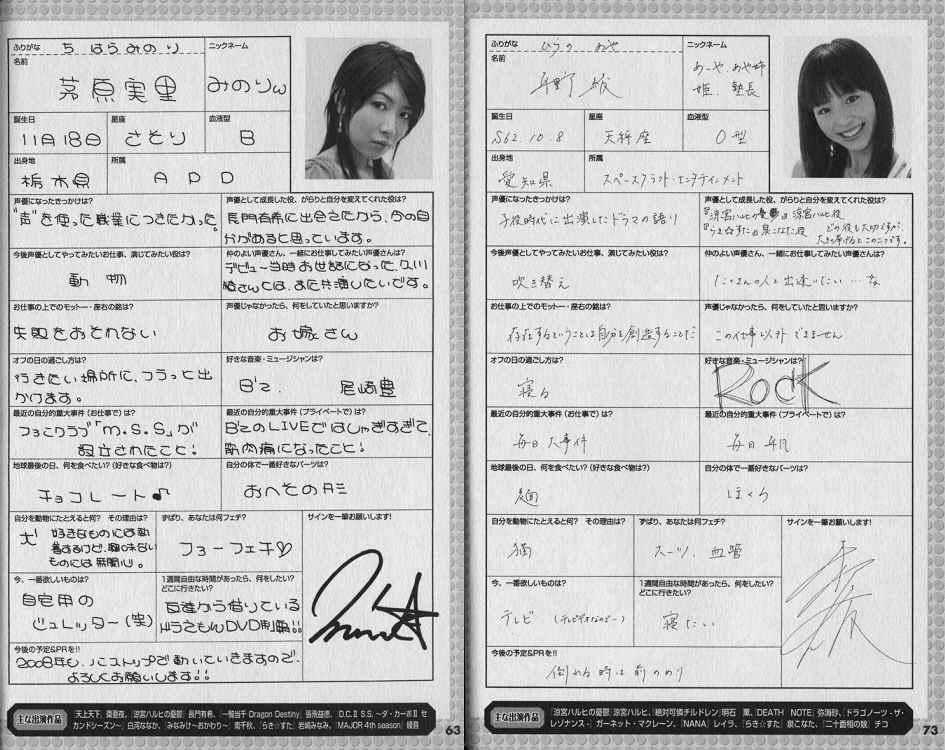 ふりがな
ちはらみのり
名前
茅原実里
ニックネーム
みのりん
誕生日
11月18日
星座
さそり
血液型
B
出身地
栃木県
所属
APD
声優になったきっかけは?
"声"を使った職業につきたかった。
声優として成長した役、がらりと自分を変えてくれた役は?
長門有希に出会えたから、今の自
分があると思っています。
今後声優としてやってみたいお仕事、演じてみたい役は?
動物
仲のよい声優さん、一緒にお仕事してみたい声優さんは?
デビュー当時お世話になった久川
綾さんとは、また共演したいです。
お仕事の上でのモットー・座右の銘は?
失敗をおそれない
声優じゃなかったら、何をしていたと思いますか?
お嫁さん
オフの日の過ごし方は?
行きたい場所に、フラっと出
かけます。
好きな音楽・ミュージシャンは?
B'z. 尾崎豊
最近の自分的重大事件(お仕事で)は?
ファンクラブ「m.s.s」が
設立されたこと!
最近の自分的重大事件(プライベートで)は?
B'zのLIVEではしゃぎすぎて、
筋肉痛になったこと!
地球最後の日、何を食べたい?(好きな食べ物は?)
チョコレート♪
自分の体で一番好きなパーツは?
おへその形
自分を動物にたとえると何? その理由は?
犬 好きなものには執
着するけど、興味ない
ものには無関心。
ずばり、あなたは何フェチ?
ファーフェチ♡
サインを一筆お願いします!
今、一番欲しいものは?
自宅用の
ジュレッター(笑)
1週間自由な時間があったら、何をしたい?
どこに行きたい?
百産から借りている
ドラえもんDVD制覇!!
今後の予定&PRを!!
2008年も、ノンストップで動いていきますので、
よろしくお願いします!!
主な出演作品
「天上天下」棗亜夜、「涼宮ハルヒの憂鬱」長門有希、「一騎当千 Dragon Destiny」張飛益徳、「D.C.Ⅱ S.S.~ダ・カーポⅡ セ
カンドシーズン~」白河ななか、「みなみけ~おかわり~」南千秋、「らき☆すた」岩崎みなみ、「MAJOR 4th season」綾音
63
ふりがな
ひらの あや
名前
平野 綾
ニックネーム
あーや、あや姉
姫、塾長
誕生日
S62.10.8
星座
天秤座
血液型
O型
出身地
愛知県
所属
スペースクラフト・エンタテインメント
声優になったきっかけは?
子役時代に出演したドラマの語り
声優として成長した役、がらりと自分を変えてくれた役は?
『涼宮ハルヒの憂鬱』涼宮ハルヒ役
『らき☆すた』泉こなた役
どの役も大切ですが、
大きく挙げるとこの二つです。
今後声優としてやってみたいお仕事、演じてみたい役は?
吹き替え
仲のよい声優さん、一緒にお仕事してみたい声優さんは?
たくさんの人と出逢いたい…な
お仕事の上でのモットー・座右の銘は?
存在するということは自分を創造することだ
声優じゃなかったら、何をしていたと思いますか?
この仕事以外できません
オフの日の過ごし方は?
寝る
好きな音楽・ミュージシャンは?
ROCK
最近の自分的重大事件(お仕事で)は?
毎日大事件
最近の自分的重大事件(プライベートで)は?
毎日平凡
地球最後の日、何を食べたい?(好きな食べ物は?)
麺
自分の体で一番好きなパーツは?
ほくろ
自分を動物にたとえると何? その理由は?
猫
ずばり、あなたは何フェチ?
スーツ、血管
サインを一筆お願いします!
今、一番欲しいものは?
テレビ (テレビデオなので…)
1週間自由な時間があったら、何をしたい?
どこに行きたい?
寝たい
今後の予定&PRを!!
倒れる時は前のめり
主な出演作品
「涼宮ハルヒの憂鬱」涼宮ハルヒ、「絶対可憐チルドレン」明石 薫、「DEATH NOTE」弥海砂、「ドラゴノーツ-ザ・
レゾナンス-」ガーネット・マクレーン、「NANA」レイラ、「らき☆すた」泉こなた、「二十面相の娘」チコ
73